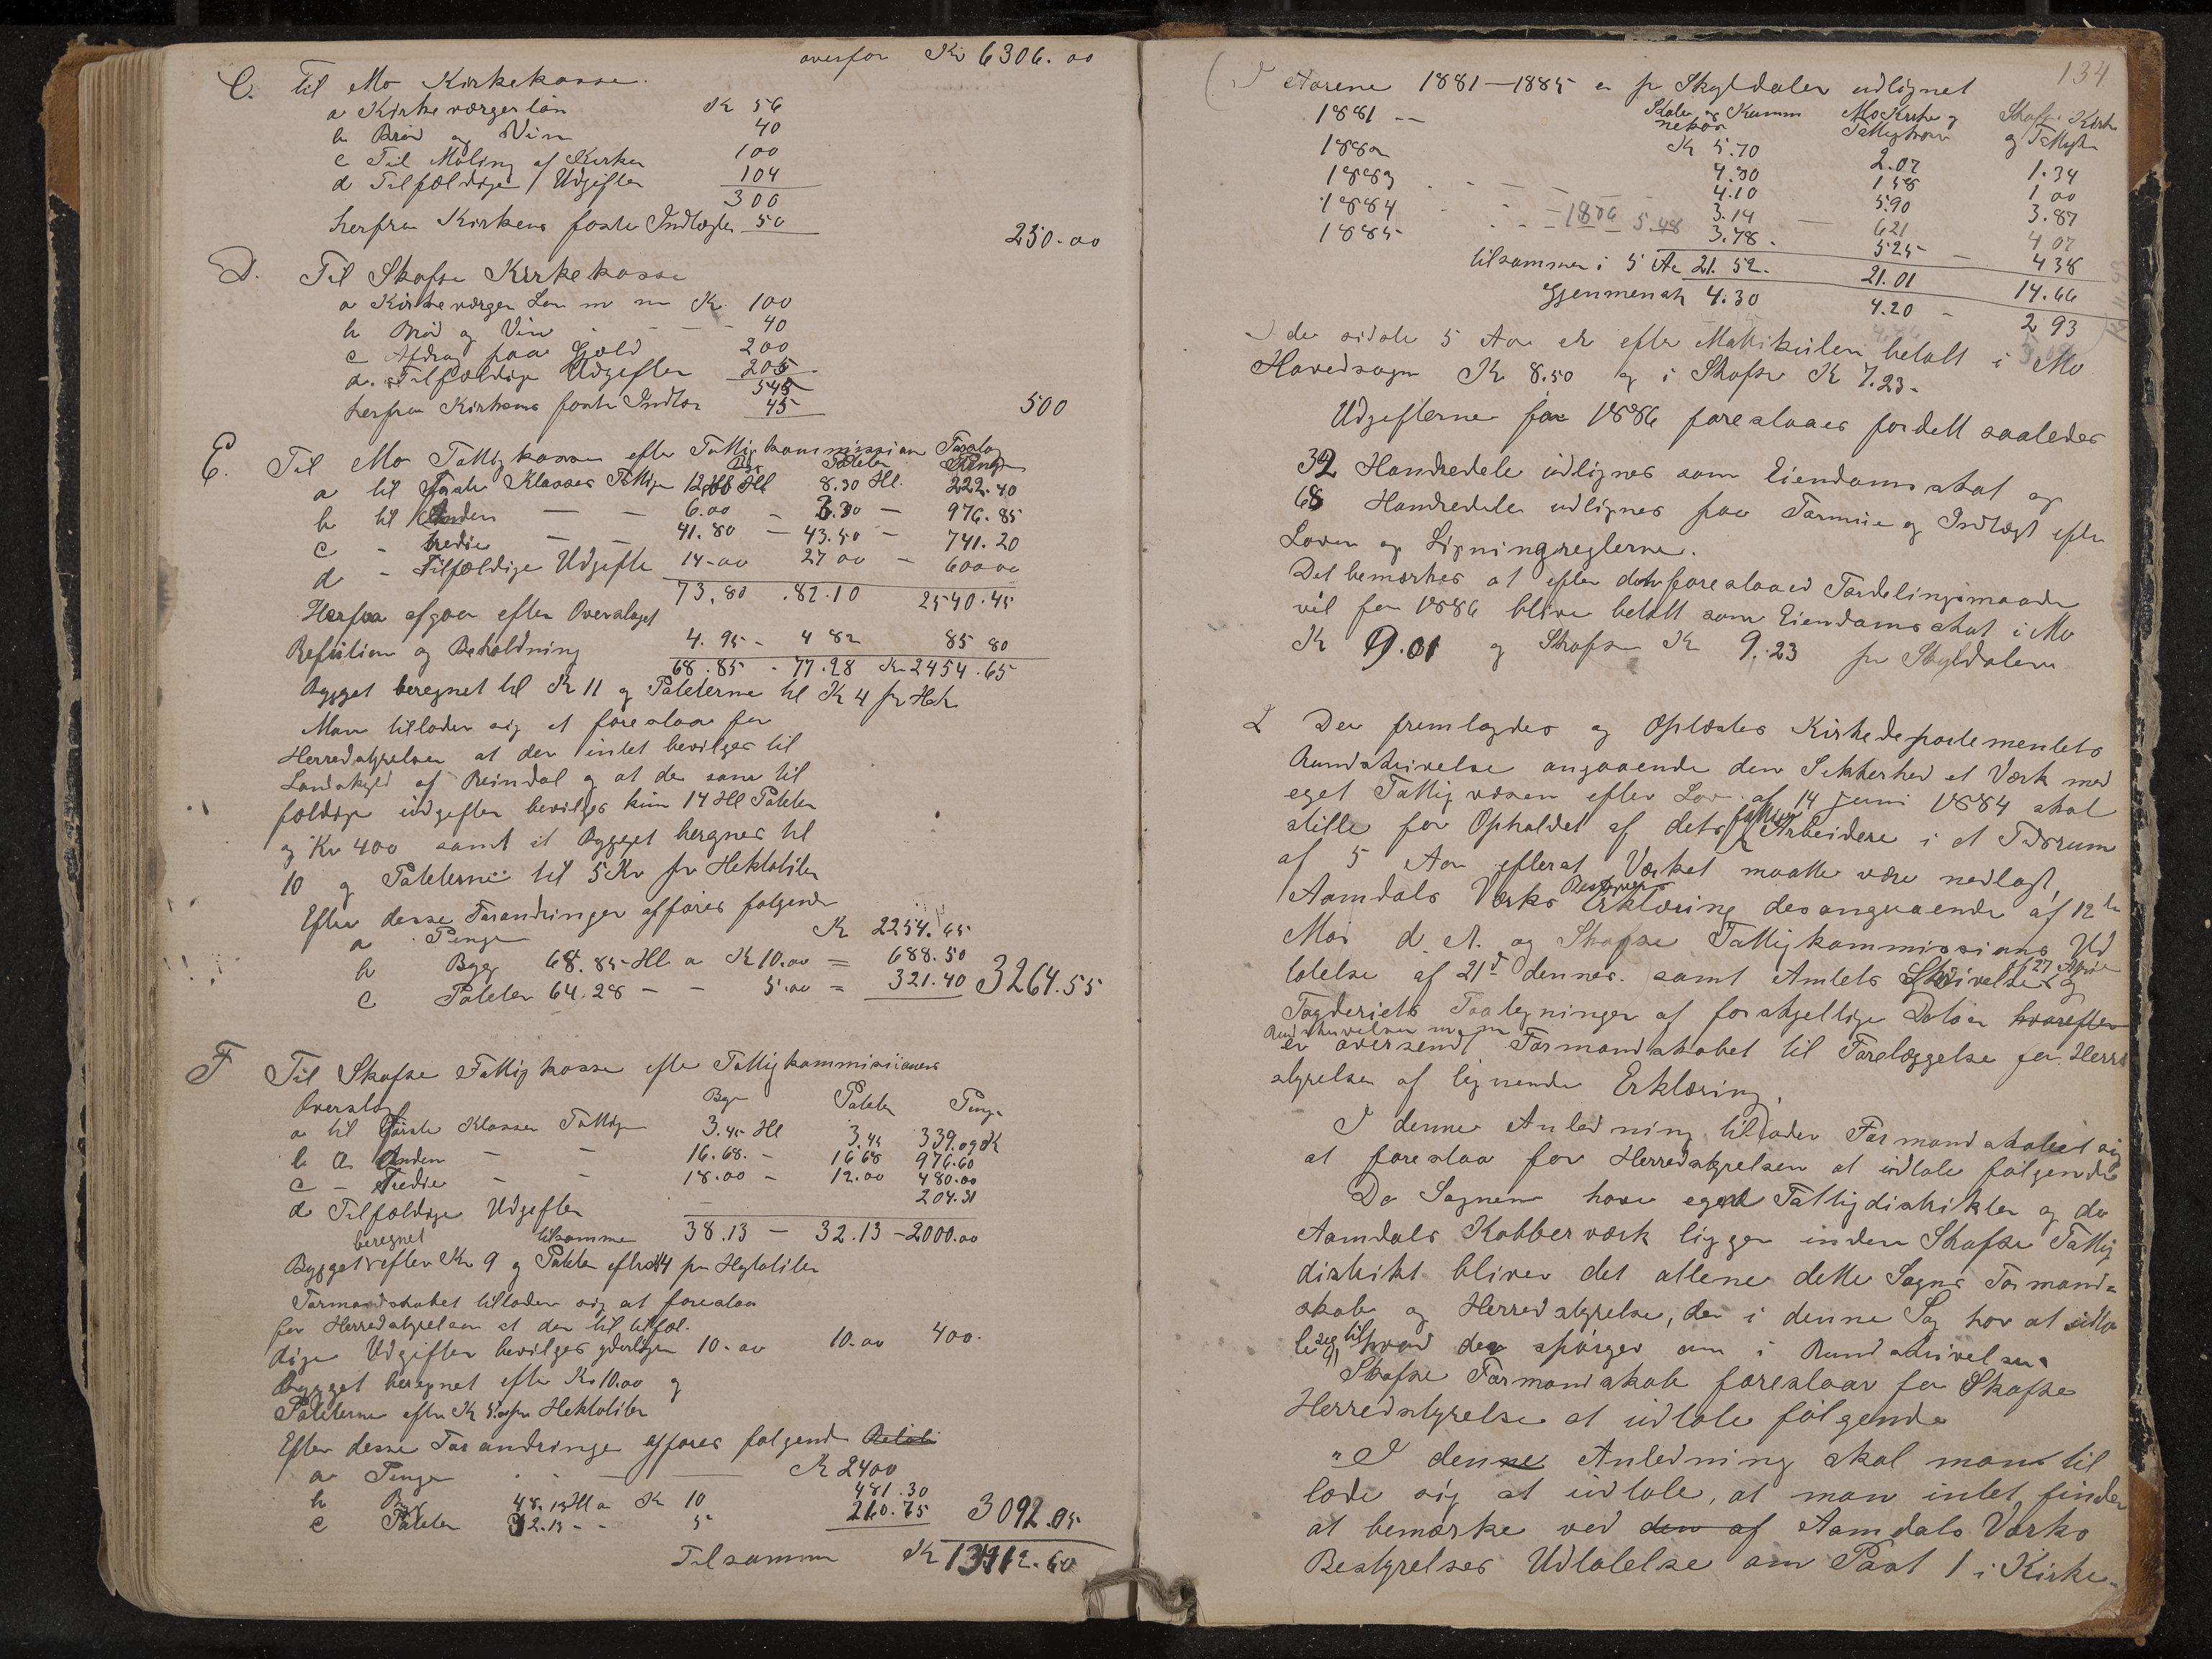 overfør Kr 6306.00
C. Til Mo Kirkekasse.
a Kirkeværgerløn Kr 56
b Brød og Vin 40
c Til Maling af Kirken 100
d Tilfældige Udgifter 104
300
herfra Kirkens faste Indtægter 50
250.00
D. Til Skafse Kirkekasse
a Kirkeværgen Løn m m Kr. 100
b Brød og Vin - - - 40
c Afdrag paa Gjæld 200
d. Tilfældige Udgifter 205
545
herfra Kirkens faste Indtør 45
500
E. Til Mo Fattigkasse efter Fattigkommission Forslag
Byg Poteter Penge
a til Første Klasses Fattige 12.00 Hl 8.30 Hl. 222.40
b til Anden — — 6.00 - 3.30 — 976.85
c - tredie — — 41.80 — 43.50 — 741.20
d - Tilfældige Udgifter 14-00 27 00 — 600 00
73.80 .82.10 2540.45
Herfra afgaar efter Overslaget
Refusion og Beholdning 4.95 - 4 82 85 80
68.85 - 77.28 Kr 2454.65
Bygget beregnet til Kr 11 og Poteterne til Kr 4 pr Hek
Man tillader sig at foreslaa for
Herredstyrelsen at der intet bevilges til
Landskyld af Reindal og at der som til
fældige udgifter bevilges kun 14 Hl Poteter
og Kr 400 samt at Bygget beregnes til
10 og Poteterne til 5 Kr pr Hektoliter
Efter desse Forandringer opføres følgende
a Penge Kr 2254.65
b Byg 68.85 Hl a Kr 10.00 = 688.50
c Poteter 64.28 — - 5.00 = 321.40 3264.55
F Til Skafse Fattigkasse efter Fattigkommissionens
Overslag Byg Poteter Penge
a til første Klasses Fattige 3.45 Hl 3.45 339.09 Kr
b Anden - - 16.68. - 16 68 976.60
c - Tredie - - 18.00 - 12.00 480.00
d Tilfældige Udgifter — 204.31
tilsamme 38.13 — 32.13 - 2000.00
beregnet
Bygget efter Kr 9 og Poteter efter 4 pr Hektoliter
Formandskabet tillader sig at foreslaa
for Herredstyrelsen at der til tilfæl-
dige Udgifter bevilges yderligere 10-00 10.00 400.
Bygget beregnet efter Kr 10.00 og
Poteterne efter Kr 5.00 pr Hektoliter
Efter desse Forandringer opføres følgende
a Penge Kr 2400
b Byg 48.13 Hl a Kr 10 481.30
c Poteter 42.15 - - 5 210.75 3092.05
Tilsammen Kr 13912.60
134
I Aarene 1881—1885 er pr Skylddaler udlignet
1881 -- Skole og Kommunekas Mo Kirke og Fattigkasse Skafse Kirke og Fattigk
Kr 5.70 2.07 1.34
1882 4.80 158 1 00
1883 4.10 5.90 3.87
1884 1886 5.48 3.14 — 621 4 07
1885 3.78. 525 — 438
tilsammen i 5 Aar 21.52. 21.01 14.66
Gjenmensnit 4.30 4.20 - 2 93
I de sidste 5 Aar er efter Matrikulen betalt i Mo
Hovedsogn Kr 8.50 og i Skafse Kr 7.23.
Udgifterne for 1886 foreslaaes fordelt saaledes
32 Hundredele udlignes som Eiendomsskat og
68 Hundredele udlignes paa Formue og Indtægt efter
Loven og Ligningsreglerne.
Det bemærkes at efter den foreslaaed Fordelingsmaade
vil for 1886 blive betalt som Eiendomsskat i Mo
Kr 9.01 og Skafse Kr 9.23 pr Skylddaler
2 Der fremlagdes og Oplæstes Kirkedepartementets
Rundskrivelse angaaende den Sikkerhed et Værk med
eget Fattigvæsen efter Lov af 14 Juni 1884 skal
stille for Opholdet af dets fattige Arbeidere i et Tidsrum
af 5 Aar efterat Værket maatte være nedlagt,
Aamdals Værks Bestyrers Erklæring desangaaende af 12te
Mai d. A. og Skafse Fattigkommissions Ud
talelse af 21d dennes. samt Amtets Skrivelse af 27 April og
Fogderiets Paategninger af forskjellige Datoer hvorefter
Rundskrivelsen m m
er oversendt Formandskabet til Forelæggelse for Herreds
styrelsen af lignende Erklæring.
I denne Anledning tillader Formandskabet sig
at foreslaa for Herredstyrelsen at udtale følgende
Da Sognene have eget Fattigdistrikter og da
Aamdals Kobberværk ligger inden Skafse Fattig
distrikt bliver det allene dette Sogns Formand=
skab og Herredstyrelse, der i denne Sag har at udta
le sig til hvad der spørges om i Rundskrivelsen.
Skafse Formandskab foreslaar for Skafse
Herredstyrelse at udtale følgende
"I denne Anledning skal man til
lade sig at udtale, at man intet finder
at bemærke ved den af Aamdals Værks
Bestyrelses Udtalelse om Post 1 i Kirke-